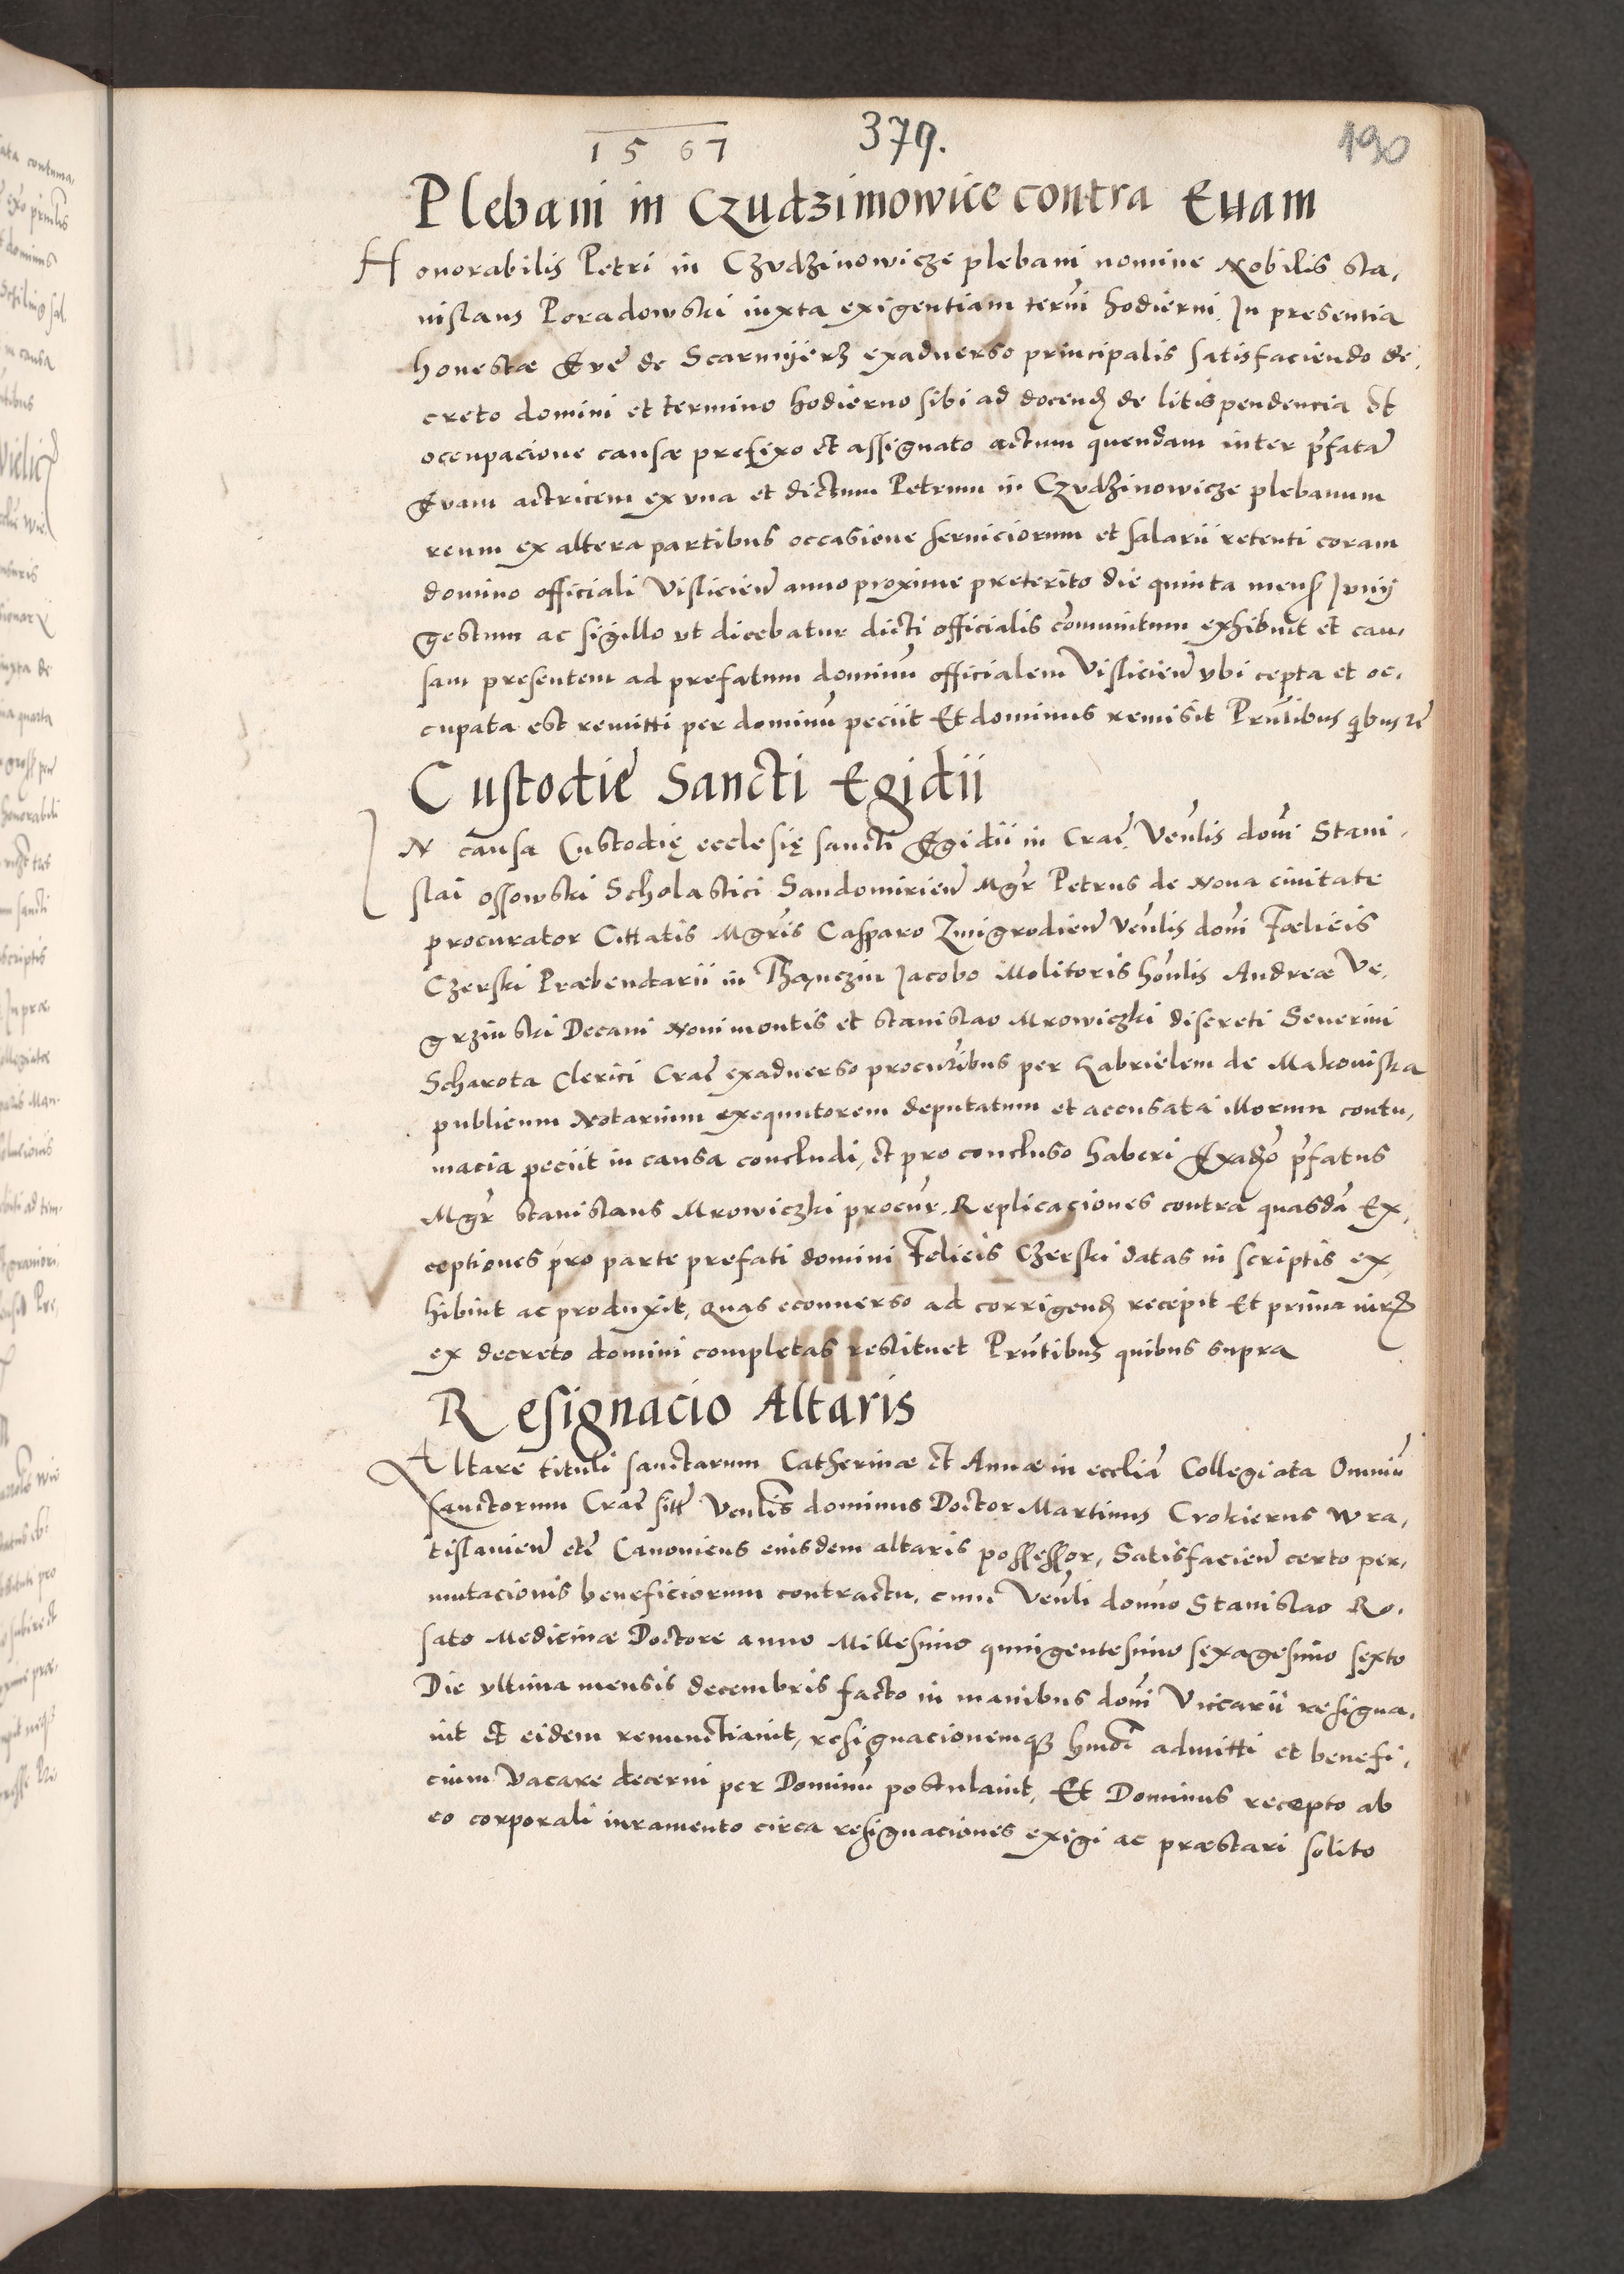 1567 379. 190
Plebani in Czudzimowice contra Euam
Honorabilis Petri in Czvdzinowicze plebani nomine Nobilis Sta,
nislaus Poradowski iuxta exigentiam termi hodierni. In presentia
honestæ Evæ de Scarmijerz exaduerso principalis satisfaciendo de,
creto domini et termino hodierno sibi ad docend de litis pendencia et
occupacione causæ prefixo et assignato actum quendam inter pfatā
Evam actricem ex vna et dictum Petrum in Czvdzinowicze plebanum
reum ex altera partibus occasione seruiciorum et salarii retenti coram
domino officiali Vislicien anno proxime preterito die quinta mens Ivnij
gestum ac sigillo vt dicebatur dicti officialis comunitum exhibuit et cau,
sam presentem ad prefatum dominū officialem Vislicien vbi cepta et oc,
cupata est remitti per dominū peciit Et dominus remisit Pntibus qbus re
Custodie Sancti Egidii
IN causa Custodię ecclesię sancti Egidii in Crac Venlis domi Stani,
slai Ossowski Scholastici Sandomirien Mgr Petrus de Nova ciuitate
procurator Cittatis Mgris Casparo Zmigrodien Venlis domi Fælicis
Czerski Præbendarii in Thanczin Jacobo Molitoris honlis Andreæ Ve,
grzinski Decani Noui montis et Stanislao Mrowiczki discreti Seuerini
Scharota Clerici Crac exaduerso procuribus per Gabrielem de Makoviska
publicum Notarium exequutorem deputatum et accusata illorum contu,
macia peciit in causa concludi, et pro concluso haberi Exado pfatus
Mgr Stanislaus Mrowiczki procur. Replicaciones contra quasdā Ex,
ceptiones pro parte prefati domini Felicis Czerski datas in scriptis ex,
hibuit ac produxit, Quas econuerso ad corrigend recepit Et prima iurd
ex decreto domini completas restituet Pntibus quibus supra
Resignacio Altaris
Altare tituli sanctarum Catherinæ et Annæ in eccliā Collegiata Omniū
Sanctorum Crac sitt Venlis dominus Doctor Martinus Crokierus Wra,
tislavien etc Canonicus eiusdem altaris possessor, Satisfacien certo per,
mutacionis beneficiorum contractu, cum Venli domno Stanislao Ro,
sato Medicinæ Doctore anno Millesimo quingentesimo sexagesimo sexto
Die vltima mensis decembris facto in manibus domi Viccarii resigna,
uit et eidem renunctiauit, resignacionemq hmoi admitti et benefi,
cium Vacare decerni per Dominū postulauit, Et Dominus recepto ab
eo corporali iuramento circa resignaciones exigi ac præstari solito